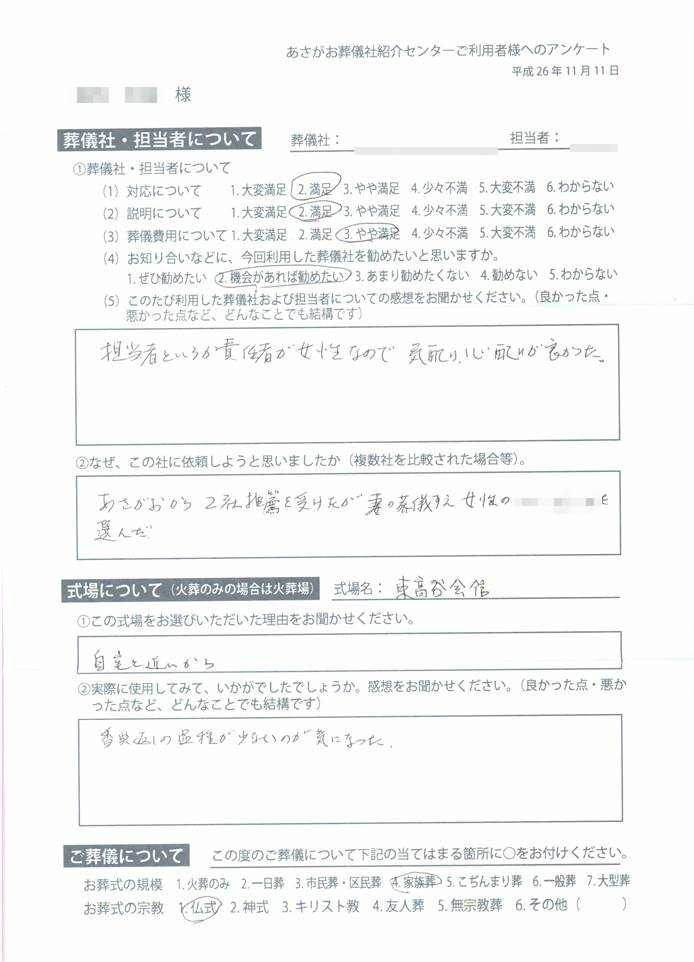 あさがお葬儀社紹介センターご利用者様へのアンケート
平成26年11月11日
様
葬儀社・担当者について 葬儀社： 担当者：
①葬儀社・担当者について
(1) 対応について 1.大変満足 2.満足 3.やや満足 4.少々不満 5.大変不満 6.わからない
(2) 説明について 1.大変満足 2.満足 3.やや満足 4.少々不満 5.大変不満 6.わからない
(3) 葬儀費用について 1.大変満足 2.満足 3.やや満足 4.少々不満 5.大変不満 6.わからない
(4) お知り合いなどに、今回利用した葬儀社を勧めたいと思いますか。
1.ぜひ勧めたい 2.機会があれば勧めたい 3.あまり勧めたくない 4.勧めない 5.わからない
(5) このたび利用した葬儀社および担当者についての感想をお聞かせください。（良かった点・
悪かった点など、どんなことでも結構です）
担当者というか責任者が女性なので 気配り、心配りが良かった。
②なぜ、この社に依頼しようと思いましたか（複数社を比較された場合等）。
あさがおから2社推薦を受けたが 妻の葬儀ゆえ 女性の を
選んだ
式場について（火葬のみの場合は火葬場） 式場名： 東高谷会館
①この式場をお選びいただいた理由をお聞かせください。
自宅と近いから
②実際に使用してみて、いかがでしたでしょうか。感想をお聞かせください。（良かった点・悪か
った点など、どんなことでも結構です）
香典返しの種が少ないのが気になった.
ご葬儀について この度のご葬儀について下記の当てはまる箇所に○をお付けください。
お葬式の規模 1.火葬のみ 2.一日葬 3.市民葬・区民葬 4.家族葬 5.こぢんまり葬 6.一般葬 7.大型葬
お葬式の宗教 1.仏式 2.神式 3.キリスト教 4.友人葬 5.無宗教葬 6.その他（ ）